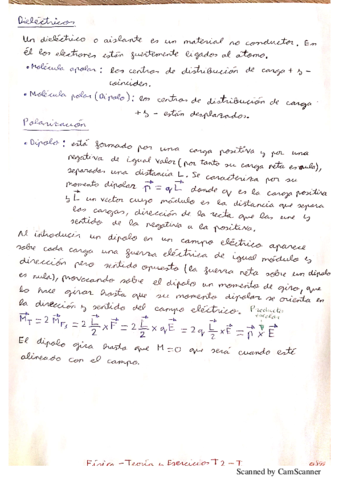 Dieléctricos
Un dieléctrico o aislante es un material no conductor. En
él los electrones están fuertemente ligados al átomo.
• Molécula apolar: los centros de distribución de carga + y -
coinciden.
• Molécula polar (Dipolo): los centros de distribución de carga
+ y - están desplazados.
Polarización
• Dipolo: está formado por una carga positiva y por una
negativa de igual valor (por tanto su carga neta es nula),
separados una distancia L. Se caracteriza por su
momento dipolar p⃗ = qL⃗ donde q es la carga positiva
y L⃗ un vector cuyo módulo es la distancia que separa
las cargas, dirección de la recta que las une y
sentido de la negativa a la positiva.
Al introducir un dipolo en un campo eléctrico aparece
sobre cada carga una fuerza eléctrica de igual módulo y
dirección pero sentido opuesto (la fuerza neta sobre un dipolo
es nula), provocando sobre el dipolo un momento de giro, que
lo hace girar hasta que su momento dipolar se orienta en
la dirección y sentido del campo eléctrico. Producto
vectorial
M⃗T = 2 M⃗F₁ = 2 L⃗/2 × F⃗ = 2 L⃗/2 × qE⃗ = 2q L⃗/2 × E⃗ = p⃗ × E⃗
El dipolo gira hasta que M=0 que será cuando esté
alineado con el campo.
Física - Teoría y Ejercicios T2 - 7
Scanned by CamScanner